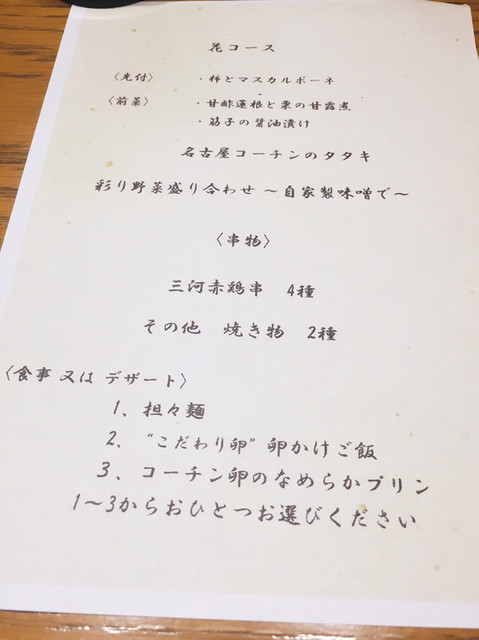 花コース
〈先付〉 ・柿とマスカルポーネ
〈前菜〉 ・甘酢蓮根と栗の甘露煮
・筋子の醤油漬け
名古屋コーチンのタタキ
彩り野菜盛り合わせ ～自家製味噌で～
〈串物〉
三河赤鶏串 4種
その他 焼き物 2種
〈食事 又は デザート〉
1、担々麺
2、“こだわり卵”卵かけご飯
3、コーチン卵のなめらかプリン
1～3からおひとつお選びください